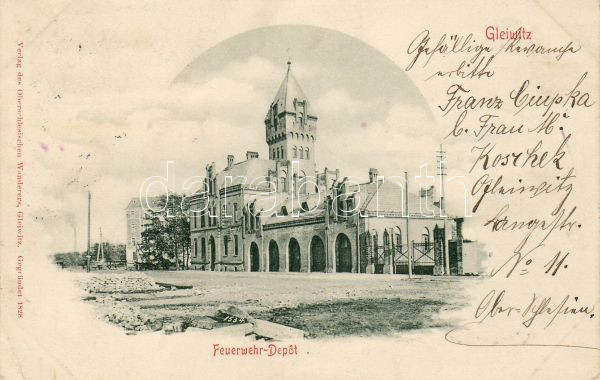 Gleiwitz
Gefällige Revanche
erbitte
Franz Ciupka
b. Frau M.
Koschek
Gleiwitz
Langestr.
No 11.
Ober-Schlesien.
Verlag des Oberschlesischen Wanderers, Gleiwitz. Gegründet 1828
darabanth
Feuerwehr-Depôt